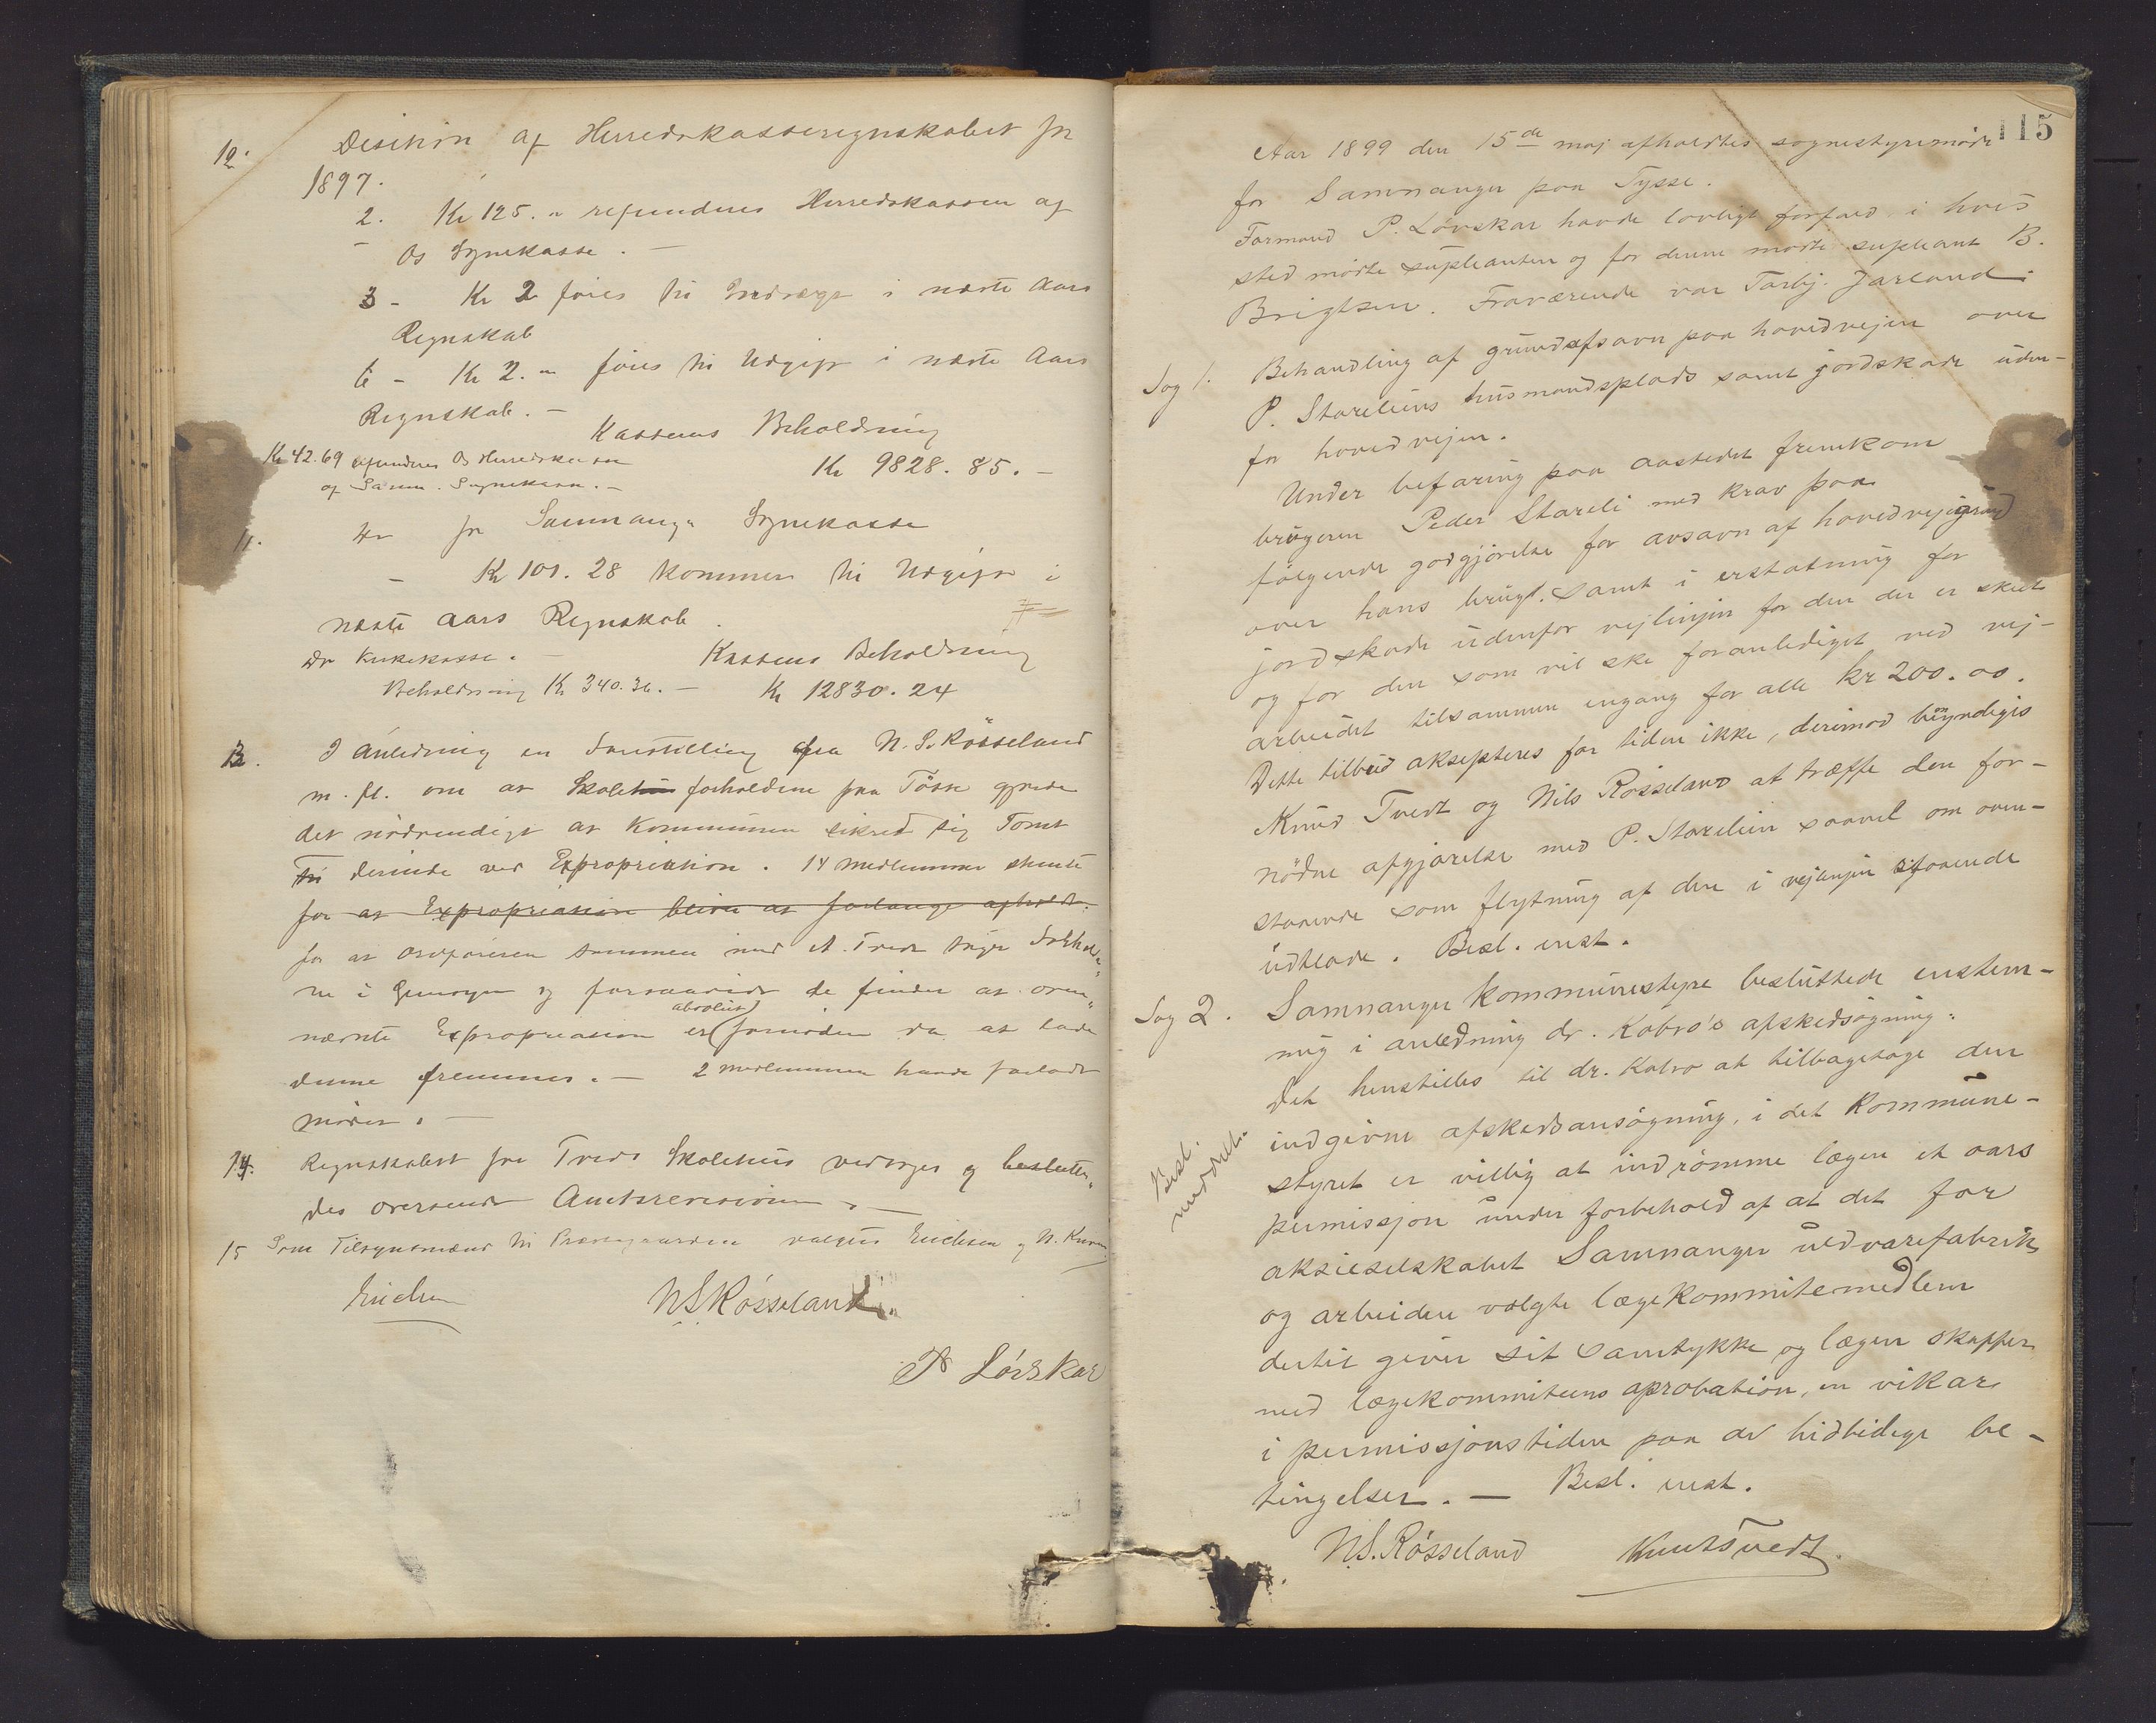 12. Desision af Herredskasseregnskabet for
1897.
2. Kr 125. " refunderes Herredskassen af
Os Sognekasse. —
3 - Kr 2 føres til Indtægt i næste Aars
Regnskab
6 - Kr 2. " føres til Udgift i næste Aars
Regnskab. —
Kassens Beholdning
Kr 42.69 refunderes Os Herredskasse
Kr 9828. 85. —
af Samn. Sognekasse. —
11. Do for Samnanger Sognekasse
- Kr 101. 28 kommer til Udgift i
næste Aars Regnskab.
Do Kirkekasse. — Kassens Beholdning
Beholdning Kr 340.36. — Kr 12830. 24
13. I Anledning en Forestilling fra N. S. Røsseland
m. fl. om at Skolehusforholdene paa Tøsse gjorde
det nødvendigt at Kommunen sikred sig Tomt
til derinde ved Expropriation. 14 Medlemmer stemte
for at Expropriasion bliver at forlange afholdt.
for at Ordføreren sammen med K. Tvedt tager Forholde-
ne i Øiensyn og forsaavidt de finder at oven-
nævnte Expropriasion er (absolut) fornøden da at lade
denne fremmes. — 2 Medlemmer havde forladt
Mødet. —
14. Regnskabet for Tveds Skolehus vedtoges og beslutte-
des oversendt Amtsrevisionen. —
15 Som Tilsynsmænd til Præstegaarden valgtes Erichsen og N.
Erichsen N S Røsseland.
P Løvskar
115
Aar 1899 den 15de maj afholdtes sognestyremøde
for Samnanger paa Tysse.
Formand P. Løvskar havde lovligt forfald i hvis
sted mødte supleanten og for denne mødte supleant B.
Brigtsen. Fraværende var Torbj. Jarland.
Sag 1. Behandling af grundafsavn paa hovedveien over
P. Stareliens husmandsplads samt jordskade uden-
for hovedvejen.
Under befaring paa aastedet fremkom
brugeren Peder Stareli med krav paa
følgende godgjørelse for avsavn af hovedvejsgrund
over hans brug. samt i erstatning for
jordskade udenfor vejlinjen for den der er skeet
og for den som vil ske foranlediget ved vej-
arbeidet tilsammen engang for alle kr 200.00.
Dette tilbud aksepteres for tiden ikke, derimod bemyndiges
Knud Tvedt og Nils Røsseland at træffe den for-
nødne afgjørelse med P. Starelien saavel om oven-
staaende som flytning af den i vejlinjen staaende
udtlade. Besl. enst.
Sag 2. Samnanger kommunestyre besluttede enstem-
mig i anledning dr. Kobro's afskedsøgning:
Det henstilles til dr. Kobro at tilbagetage den
indgivne afskedsansøgning, i det kommune-
Besl.
meddelt.
styret er villig at indrømme lægen et aars
permissjon under forbehold af at det for
aksieselskabet Samnanger uldvarefabrik
og arbeidere valgte lægekommitemedlem
dertil giver sit samtykke og lægen skaffer
med lægekommiteens aprobation, en vikar
i permissjonstiden paa de hidtidige be-
tingelser. — Besl. enst.
N.S. Røsseland Knut Tvedt.